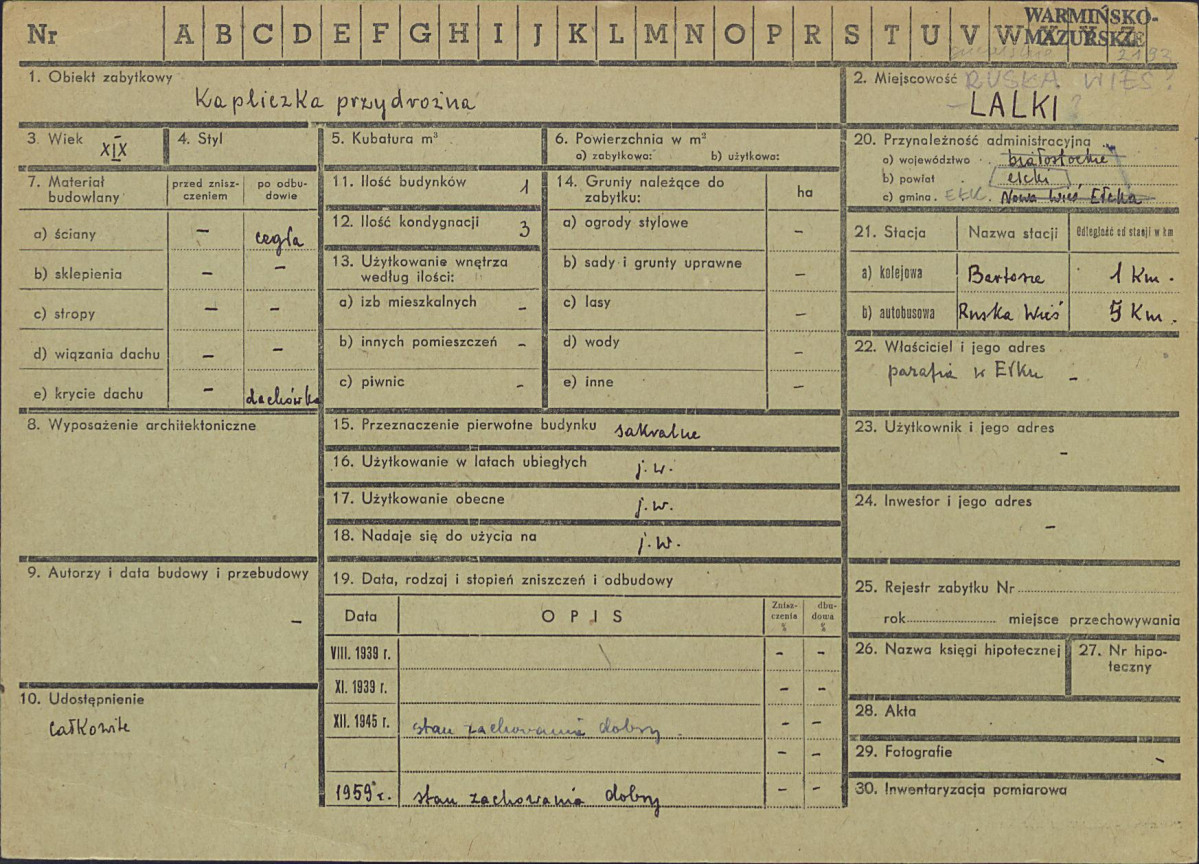 Nr A B C D E F G H I J K L M N O P R S T U V W X Y Z
WARMIŃSKO-
MAZURSKIE
1. Obiekt zabytkowy
Kapliczka przydrożna
2. Miejscowość RUSKA WIEŚ?
LALKI ?
3. Wiek XIX
4. Styl
5. Kubatura m³
6. Powierzchnia w m²
a) zabytkowa: b) użytkowa:
7. Materiał budowlany
przed znisz-
czeniem
po odbu-
dowie
a) ściany – cegła
b) sklepienia – –
c) stropy – –
d) wiązania dachu – –
e) krycie dachu – dachówka
8. Wyposażenie architektoniczne
9. Autorzy i data budowy i przebudowy
–
10. Udostępnienie
całkowite
11. Ilość budynków 1
12. Ilość kondygnacji 3
13. Użytkowanie wnętrza
według ilości:
a) izb mieszkalnych –
b) innych pomieszczeń –
c) piwnic –
14. Grunty należące do
zabytku:
ha
a) ogrody stylowe –
b) sady i grunty uprawne –
c) lasy –
d) wody –
e) inne –
15. Przeznaczenie pierwotne budynku sakralne
16. Użytkowanie w latach ubiegłych j.w.
17. Użytkowanie obecne j.w.
18. Nadaje się do użycia na j.w.
19. Data, rodzaj i stopień zniszczeń i odbudowy
Data
O P I S
Znisz-
czenia
%
dbu-
dowa
%
VIII. 1939 r. – –
XI. 1939 r. – –
XII. 1945 r. stan zachowania dobry. – –
– –
1959 r. stan zachowania dobry – –
20. Przynależność administracyjna
a) województwo białostockie
b) powiat ełcki
c) gmina EŁK. Nowa Wieś Ełcka
21. Stacja
Nazwa stacji
Odległość od stacji w km
a) kolejowa Bartosze 1 Km.
b) autobusowa Ruska Wieś 5 Km.
22. Właściciel i jego adres
parafia w Ełku –
23. Użytkownik i jego adres
–
24. Inwestor i jego adres
–
25. Rejestr zabytku Nr
rok miejsce przechowywania
26. Nazwa księgi hipotecznej
27. Nr hipo-
teczny
28. Akta
29. Fotografie –
30. Inwentaryzacja pomiarowa